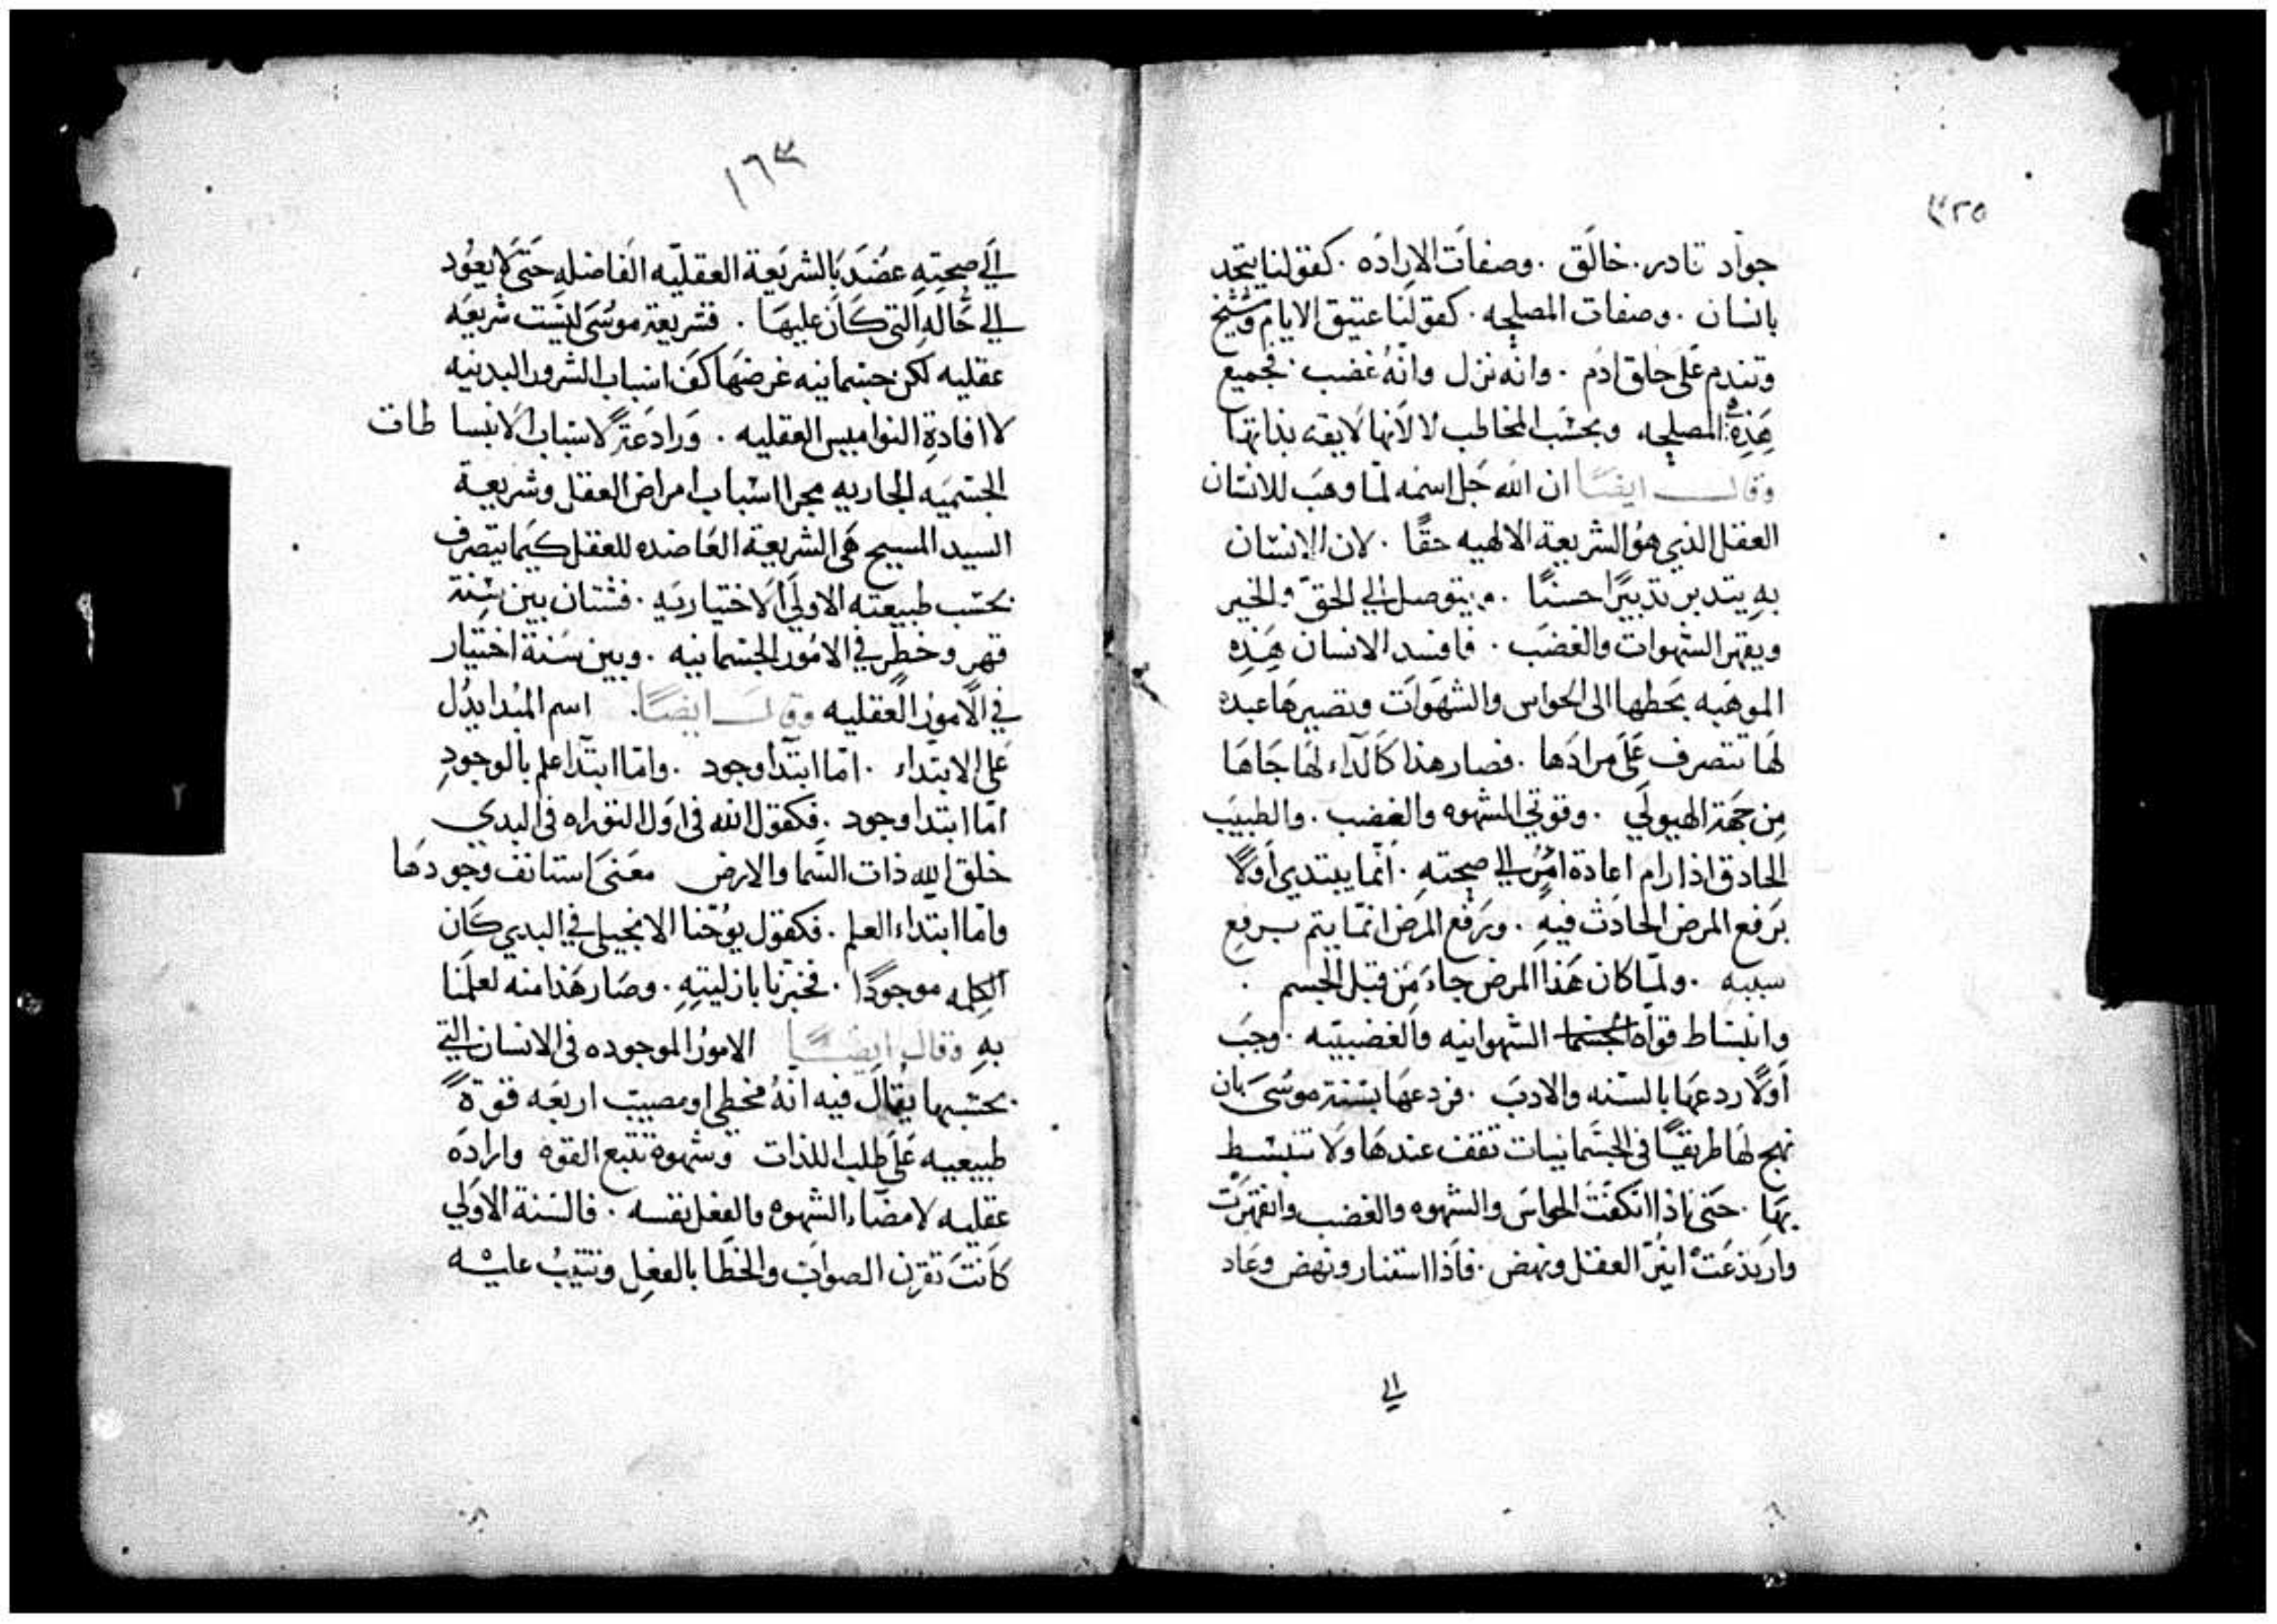 ٣٢٥
جواد قادر. خالق. وصفات الاراده. كقولنا يتحد
بانسان. وصفات المصلحه. كقولنا عتيق الايام وشيخ
وتندم على خلق ادم. وانه نزل وانه غضب فجميع
هذه المصلحه وبحسب المخاطب لا لانها لايقه بذاتها
وقال ايضًا ان الله جل اسمه لما وهب للانسان
العقل الذي هو الشريعة الالهيه حقًا. لان الانسان
به يتدبر تدبيرًا حسنًا. ويتوصل الي الحق والخير
ويقهر الشهوات والغضب. فافسد الانسان هذه
الموهبه بحطها الى الحواس والشهوات وتصيرها عبده
لها تتصرف على مرادها. فصار هذا كالداء لها جاها
من جهة الهيولي. وقوتي الشهوه والغضب. والطبيب
الحادق اذا رام اعادة امرٍ الي صحته. انما يبتدي اولًا
برفع المرض الحادث فيه. ورفع المرض انما يتم برفع
سببه. ولما كان هذا المرض جاء من قبل الجسم.
وانبساط قواه الشهوانيه والغضبيه. وجب
اولًا ردعها بالسنه والادب. فردعها بسنة موسى بان
نهج لها طريقًا في الجسمانيات تقف عندها ولا تنبسط
بها. حتى اذا انكفت الحواس والشهوه والغضب وانقهرت
وارتدعت انير العقل ونهض. فاذا استنار ونهض وعاد
الي
١٦٣
الي صحته عضد بالشريعة العقليه الفاضله حتى لا يعود
الي حاله التي كان عليها. فشريعة موسى ليست شريعه
عقليه لكن جسمانيه غرضها كف اسباب الشرور البدنيه
لا افادة النواميس العقليه. ورادعةً لاسباب الانبساطات
الجسميه الجاريه مجرا اسباب امراض العقل وشريعة
السيد المسيح هي الشريعة العاضده للعقل كيما يتصرف
بحسب طبيعته الاولي الاختياريه. فشتان بين سنة
قهر وخطر في الامور الجسمانيه. وبين سنة اختيار
في الامور العقليه وقال ايضًا. اسم المبدا يدل
على الابتداء. اما ابتدا وجود. واما ابتدا علم بالوجود
اما ابتدا وجود. فكقول الله في اول التوراه في البدي
خلق الله ذات السما والارض معنى استانف وجودها
واما ابتداء العلم. فكقول يوحنا الانجيلي في البدي كان
الكلمه موجودًا. فخبرنا بازليته. وصار هذا منه لعلمنا
به وقال ايضًا الامور الموجوده في الانسان التي
بحسبها يقال فيه انه مخطي او مصيب اربعه قوةً
طبيعيه على طلب اللذات وشهوة تتبع القوه واراده
عقليه لامضاء الشهوه والفعل نفسه. فالسنة الاولي
كانت تقرن الصواب والخطا بالفعل وتثيب عليه